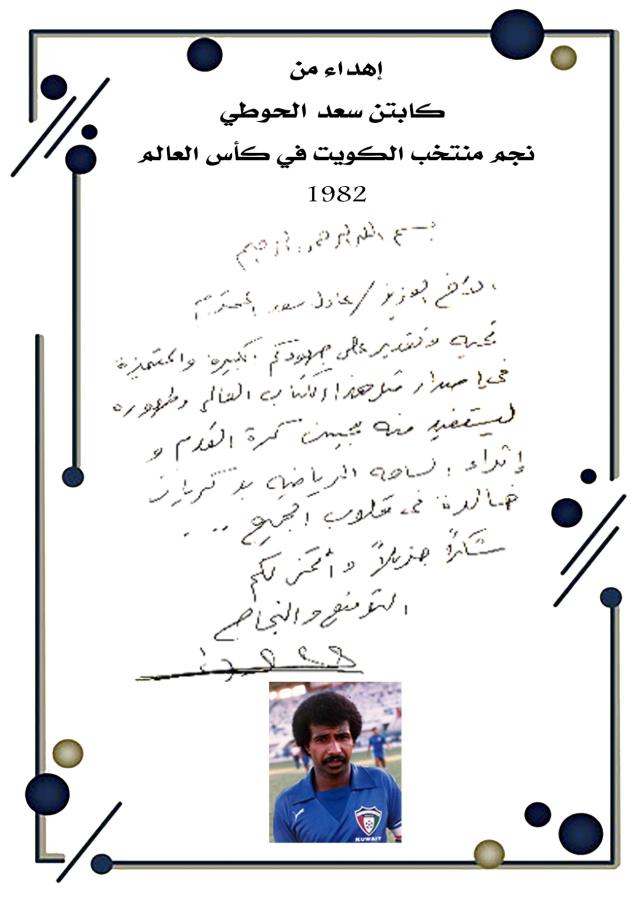 إهداء من
كابتن سعد الحوطي
نجم منتخب الكويت في كأس العالم
1982
بسم الله الرحمن الرحيم
الأخ العزيز / عادل سعد المحترم
تحية وتقدير على جهودكم الكبيرة والمتميزة
في إصدار مثل هذا الكتاب القالم وظهوره
ليستفيد منه محبين كرة القدم و
إثراء الساحه الرياضيه بذكريات
خالدة في قلوب الجميع ...
شكراً جزيلاً وأتمنى لكم
التوفيق والنجاح
KUWAIT